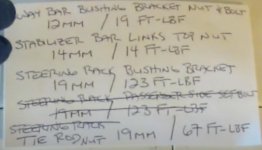 SWAY BAR BUSHING BRACKET NUT & BOLT
12MM / 19 FT-LBF
STABILIZER BAR LINKS TOP NUT
14MM / 14 FT-LBF
STEERING RACK / BUSHING BRACKET
19MM / 123 FT-LBF
STEERING RACK PASSENGER SIDE SET BOLT
19MM / 123 FT-LBF
STEERING RACK
TIE ROD NUT 19MM / 67 FT-LBF